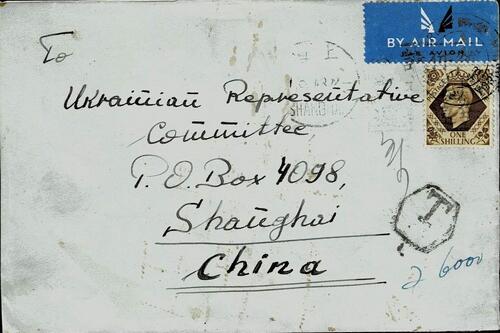 To
BY AIR MAIL
PAR AVION
Ukrainian Representative
Committee
P.O. Box 4098,
Shanghai
China
ONE
SHILLING
T
6000